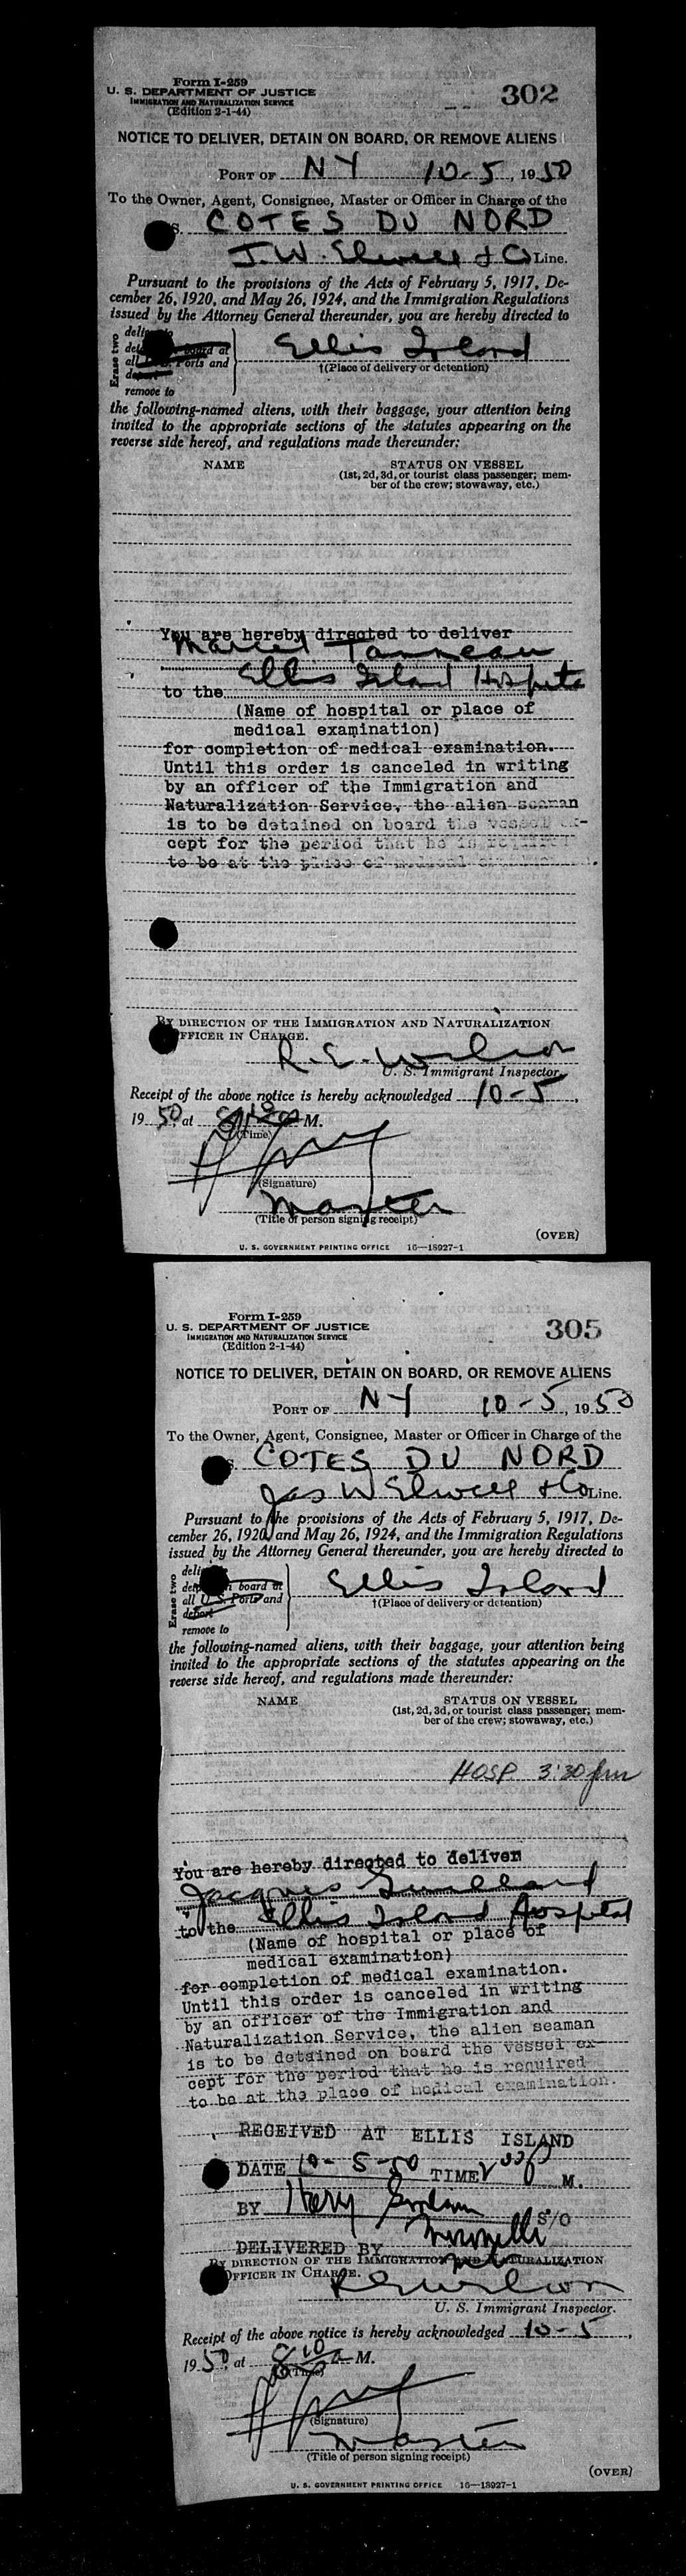 Form I-259
U. S. DEPARTMENT OF JUSTICE
IMMIGRATION AND NATURALIZATION SERVICE
(Edition 2-1-44)
302
NOTICE TO DELIVER, DETAIN ON BOARD, OR REMOVE ALIENS
PORT OF NY 10-5, 1950
To the Owner, Agent, Consignee, Master or Officer in Charge of the
S. COTES DU NORD
J. W. Elwell & Co Line.
Pursuant to the provisions of the Acts of February 5, 1917, De-
cember 26, 1920, and May 26, 1924, and the Immigration Regulations
issued by the Attorney General thereunder, you are hereby directed to
Erase two
board at
all Ports and
remove to
Ellis Island
†(Place of delivery or detention)
the following-named aliens, with their baggage, your attention being
invited to the appropriate sections of the statutes appearing on the
reverse side hereof, and regulations made thereunder:
NAME
STATUS ON VESSEL
(1st, 2d, 3d, or tourist class passenger; mem-
ber of the crew; stowaway, etc.)
You are hereby directed to deliver
Marcel Tanneau
to the Ellis Island Hospital
(Name of hospital or place of
medical examination)
for completion of medical examination.
Until this order is canceled in writing
by an officer of the Immigration and
Naturalization Service, the alien seaman
is to be detained on board the vessel ex-
cept for the period that he is required
to be at the place of medical examination.
BY DIRECTION OF THE IMMIGRATION AND NATURALIZATION
OFFICER IN CHARGE.
R. E. Wilson
U. S. Immigrant Inspector.
Receipt of the above notice is hereby acknowledged 10-5,
1950, at M.
(Time)
(Signature)
Master
(Title of person signing receipt)
(OVER)
U. S. GOVERNMENT PRINTING OFFICE 16—18927-1
Form I-259
U. S. DEPARTMENT OF JUSTICE
IMMIGRATION AND NATURALIZATION SERVICE
(Edition 2-1-44)
305
NOTICE TO DELIVER, DETAIN ON BOARD, OR REMOVE ALIENS
PORT OF NY 10-5, 1950
To the Owner, Agent, Consignee, Master or Officer in Charge of the
S. COTES DU NORD
Jas W Elwell & Co Line.
Pursuant to the provisions of the Acts of February 5, 1917, De-
cember 26, 1920, and May 26, 1924, and the Immigration Regulations
issued by the Attorney General thereunder, you are hereby directed to
Erase two
board at
all U. S. Ports and
depart
remove to
Ellis Island
†(Place of delivery or detention)
the following-named aliens, with their baggage, your attention being
invited to the appropriate sections of the statutes appearing on the
reverse side hereof, and regulations made thereunder:
NAME
STATUS ON VESSEL
(1st, 2d, 3d, or tourist class passenger; mem-
ber of the crew; stowaway, etc.)
HOSP. 3:30 pm
You are hereby directed to deliver
Jacques
to the Ellis Island Hospital
(Name of hospital or place of
medical examination)
for completion of medical examination.
Until this order is canceled in writing
by an officer of the Immigration and
Naturalization Service, the alien seaman
is to be detained on board the vessel ex-
cept for the period that he is required
to be at the place of medical examination.
RECEIVED AT ELLIS ISLAND
DATE 10-5-50 TIME M.
BY S/O
DELIVERED BY
BY DIRECTION OF THE IMMIGRATION AND NATURALIZATION
OFFICER IN CHARGE.
R E Wilson
U. S. Immigrant Inspector.
Receipt of the above notice is hereby acknowledged 10-5,
1950, at 8 10 a M.
(Time)
(Signature)
Master
(Title of person signing receipt)
(OVER)
U. S. GOVERNMENT PRINTING OFFICE 16—18927-1